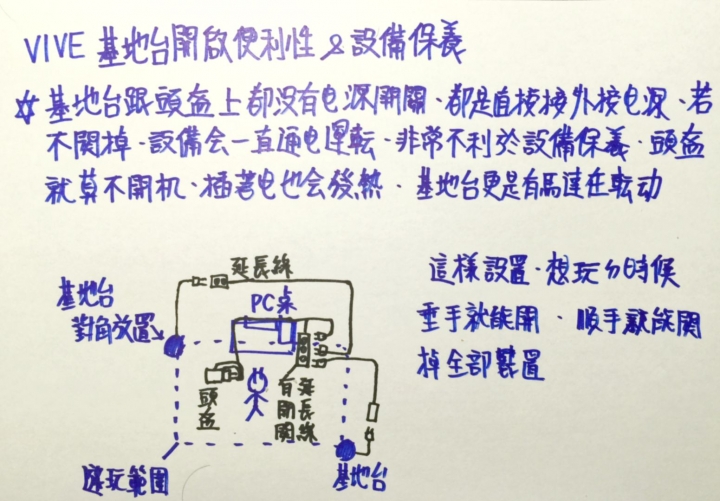 VIVE 基地台開啟便利性 & 設備保養
☆ 基地台跟頭盔上都沒有电源開關、都是直接接外接电源、若
不關掉、設備会一直通电運転、非常不利於設備保養、頭盔
就算不開机、插著电也会發熱、基地台更是有馬達在転动
延長線
基地台
對角放置
PC桌
頭盔
有開關
延長線
遊玩範圍
基地台
這樣設置、想玩ㄉ時候
垂手就能開、順手就能關
掉全部裝置